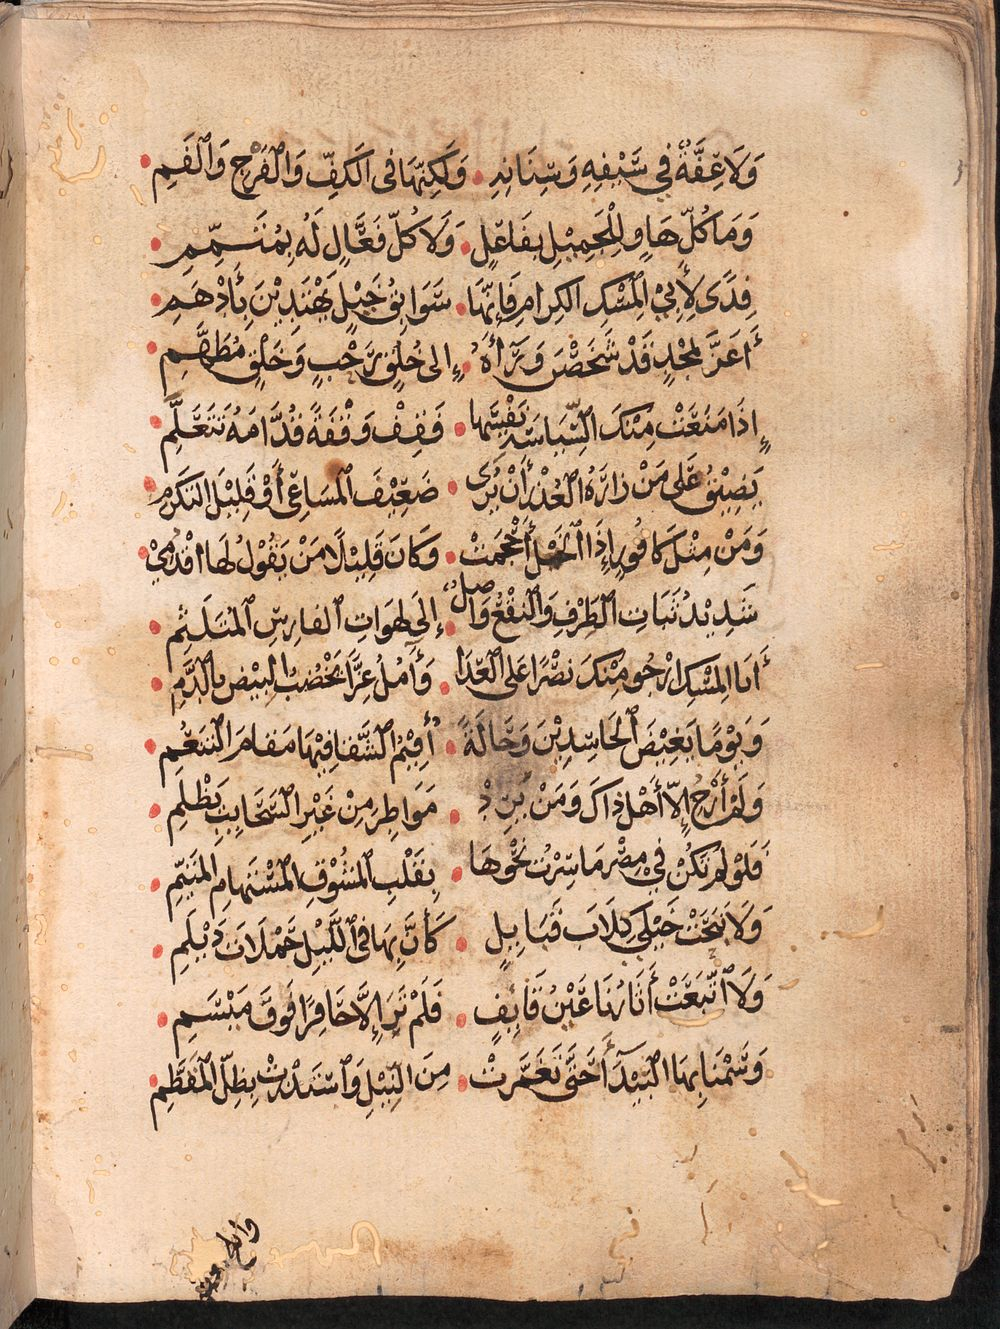 وَلَا عِفَّةٌ فِي سَيْفِهِ وَسِنَانِهِ وَلَكِنَّهَا فِى الكَفِّ وَالْفَرْجِ وَالْفَمِ
وَمَا كُلُّ هَاوٍ لِلْجَمِيْلِ بِفَاعِلٍ وَلَا كُلُّ فَعَّالٍ لَهُ بِمُتَمِّمِ
فِدًى لِأَبِي الْمِسْكِ الكِرَامِ فَإِنَّهَا سَوَابِقُ خَيْلٍ يَهْتَدِيْنَ بِأَدْهَمِ
أَغَرَّ بِمَجْدٍ قَدْ شَخَصْنَ وَرَآءَهُ إِلى خُلُقٍ رَحْبٍ وَخَلْقٍ مُطَهَّمِ
إِذَا مَنَعَتْ مِنْكَ السِّيَاسَةُ نَفْسَهَا فَقِفْ وَقْفَةً قُدَّامَهُ تَتَعَلَّمِ
يَضِيْقُ عَلَى مَنْ رَاءَهُ الْعُذْرُ أَنْ يُرَى ضَعِيْفَ الْمَسَاعِى أَوْ قَلِيْلَ التَكَرُّمِ
وَمَنْ مِثْلُ كَافُورٍ إِذَا الخَيْلُ أَحْجَمَتْ وَكَانَ قَلِيْلًا مَنْ يَقُوْلُ لَهَا اقْدُمِيْ
شَدِيْدُ ثَبَاتِ الطَّرْفِ وَالنَّقْعُ وَاصِلٌ إِلَى لَهَوَاتِ الْفَارِسِ الْمُتَلَثِّمِ
أَبَا الْمِسْكِ ارْجُو مِنْكَ نَصْرًا عَلَى الْعِدَا وَآمُلُ عِزًّا يَخْضُبُ الْبِيْضَ بِالدَّمِ
وَيَوْمًا يَغِيْضُ الْحَاسِدِيْنَ وَحَالَةً أُقِيْمُ الشَّقَا فِيْهَا مَقَامَ التَّنَعُّمِ
وَلَمْ أَرْجُ إِلَّا أَهْلَ ذَاكَ وَمَنْ يُرِدْ مَوَاطِرَ مِنْ غَيْرِ السَّحَائِبِ يَظْلِمِ
فَلَوْ لَمْ تَكُنْ فِي مِصْرَ مَا سِرْتُ نَحْوَهَا بِقَلْبِ الْمَشُوْقِ الْمُسْتَهَامِ الْمُتَيَّمِ
وَلَا نَبَحَتْ خَيْلِي كِلَابُ قَبَايِلٍ كَأَنَّ بِهَا فِى اللَّيْلِ حَمْلَاتِ دَيْلَمِ
وَلَا اتَّبَعَتْ أَثَارَنَا عَيْنُ قَائِفٍ فَلَمْ تَرَ إِلَّا حَافِرًا فَوْقَ مَنْسَمِ
وَسَمْنَا بِهَا الْبَيْدَآءَ حَتَّى تَغَمَّرَتْ مِنَ النِّيْلِ وَاسْتَذْرَتْ بِظِلِّ الْمُقَطَّمِ